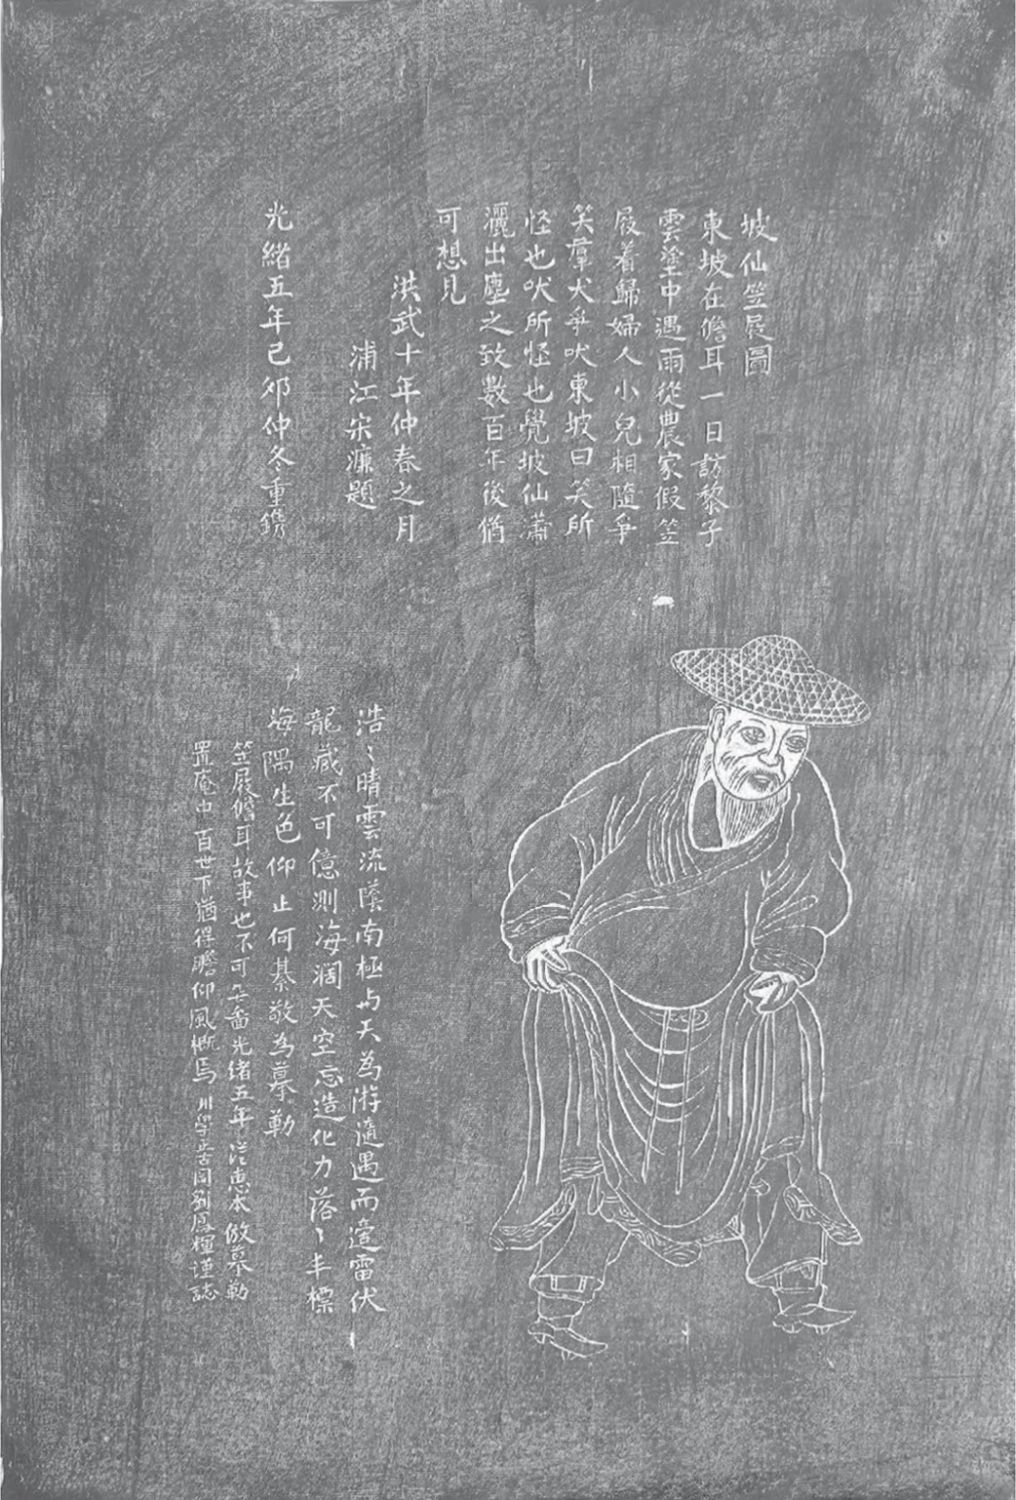 坡仙笠屐圖
東坡在儋耳一日訪黎子
雲塗中遇雨從農家假笠
屐着歸婦人小兒相隨爭
笑羣犬爭吠東坡曰笑所
怪也吠所怪也覺坡仙蕭
灑出塵之致數百年後猶
可想見
洪武十年仲春之月
浦江宋濂題
光緒五年己夘仲冬重鐫
浩〻晴雲流蔭南極与天為游適遇而遠雷伏
龍藏不可億測海濶天空忘造化力落〻丰標
海隅生色仰止何綦敬為摹勒
笠屐儋耳故事也不可無畵光緒五年從惠本倣摹勒
置庵中百世下猶得瞻仰風概焉 川學告岡劉鳳輝謹誌